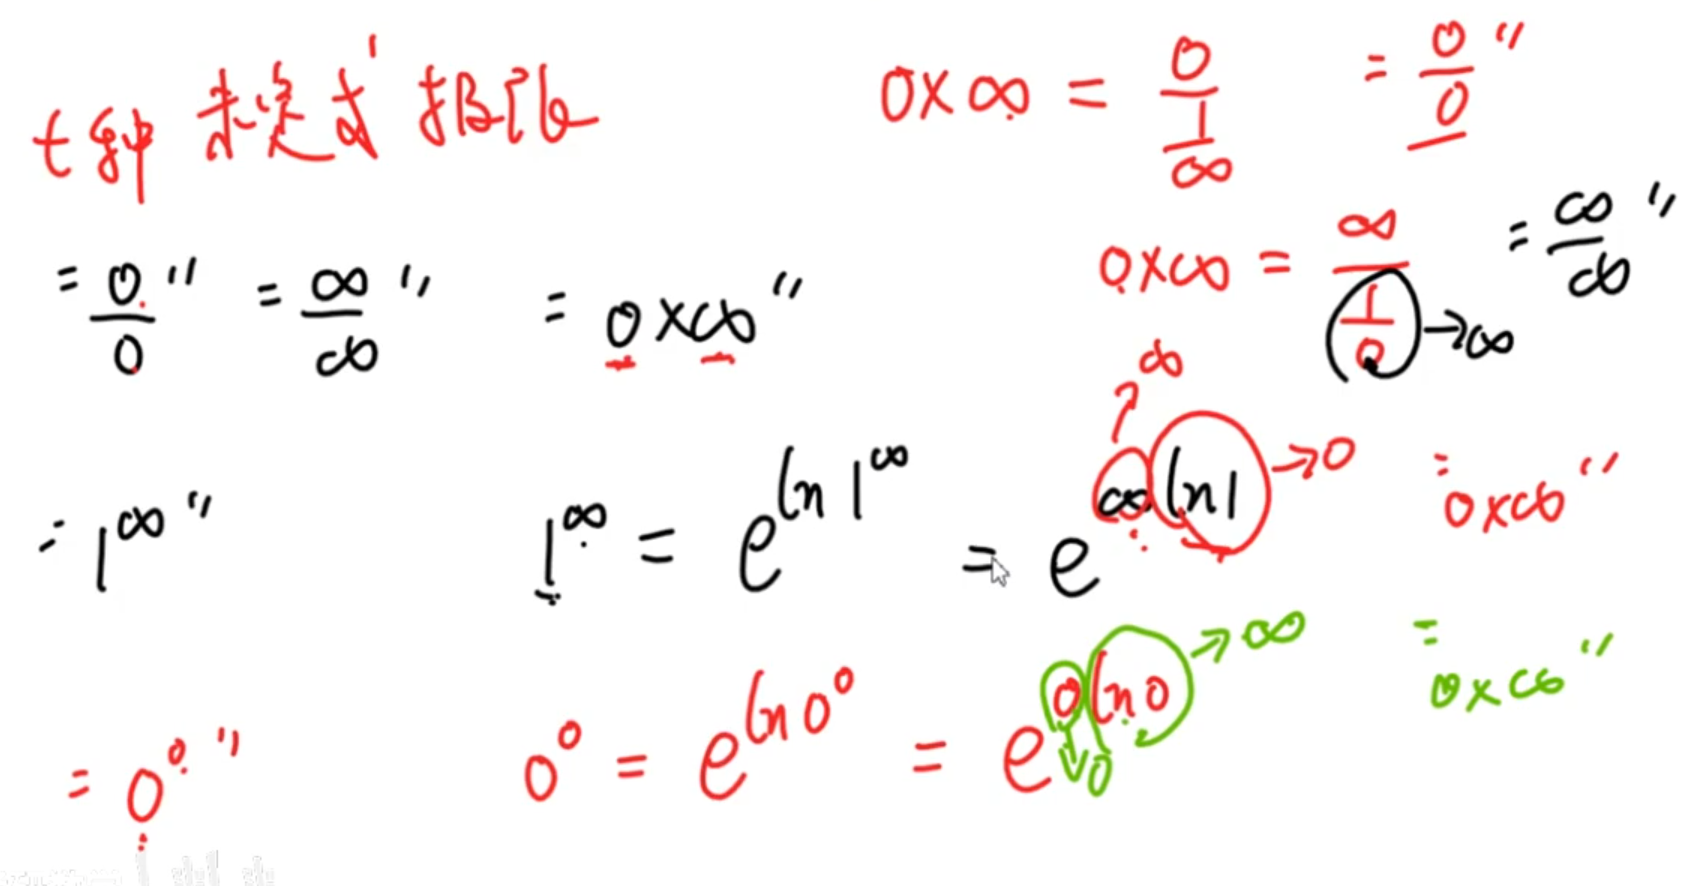 七种未定式极限
0×∞ = 0/(1/∞) = "0/0"
0×∞ = ∞/(1/0) → ∞ = "∞/∞"
"0/0" "∞/∞" "0×∞"
"1^∞" 1^∞ = e^(ln 1^∞) = e^(∞ ln 1) → ∞ → 0 "0×∞"
"0^0" 0^0 = e^(ln 0^0) = e^(0 ln 0) → 0 → ∞ "0×∞"